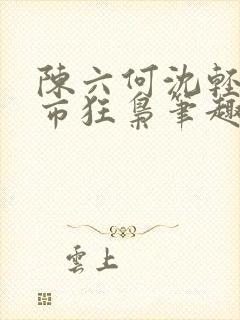 陳六何沈輕
市狂梟筆趣
雲上